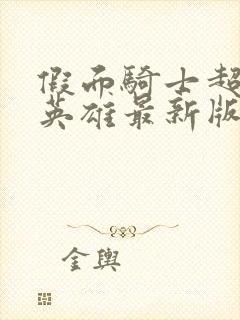 假而騎士超
英雄最新版
金輿